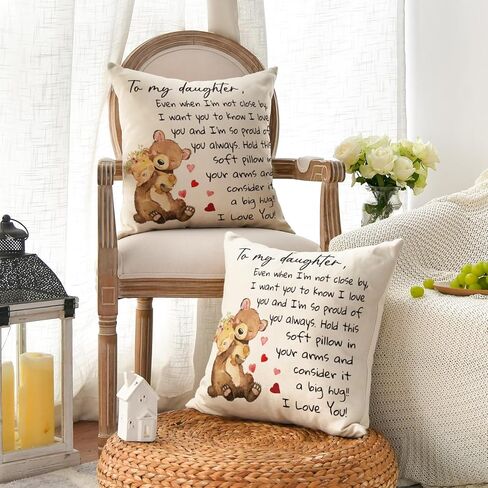 To my daughter,
Even when I'm not close by,
I want you to know I love
you and I'm so proud of
you always. Hold this
soft pillow in
your arms and
consider it
a big hug!!
I Love You!
To my daughter,
Even when I'm not close by,
I want you to know I love
you and I'm so proud of
you always. Hold this
soft pillow in
your arms and
consider it
a big hug!!
I Love You!